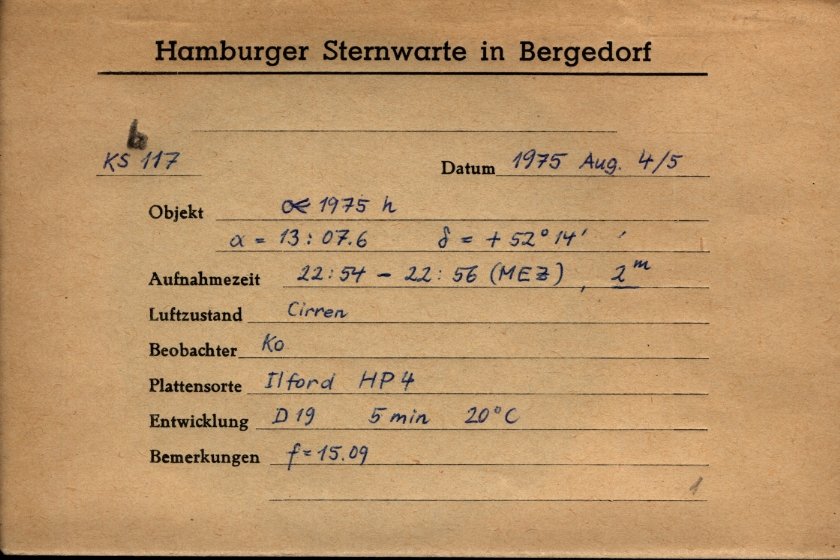 Hamburger Sternwarte in Bergedorf
b
KS 117 Datum 1975 Aug. 4/5
Objekt ☄ 1975 h
α = 13:07.6 δ = + 52° 14'
Aufnahmezeit 22:54 - 22:56 (MEZ), 2ᵐ
Luftzustand Cirren
Beobachter Ko
Plattensorte Ilford HP4
Entwicklung D19 5 min 20°C
Bemerkungen f=15.09
1